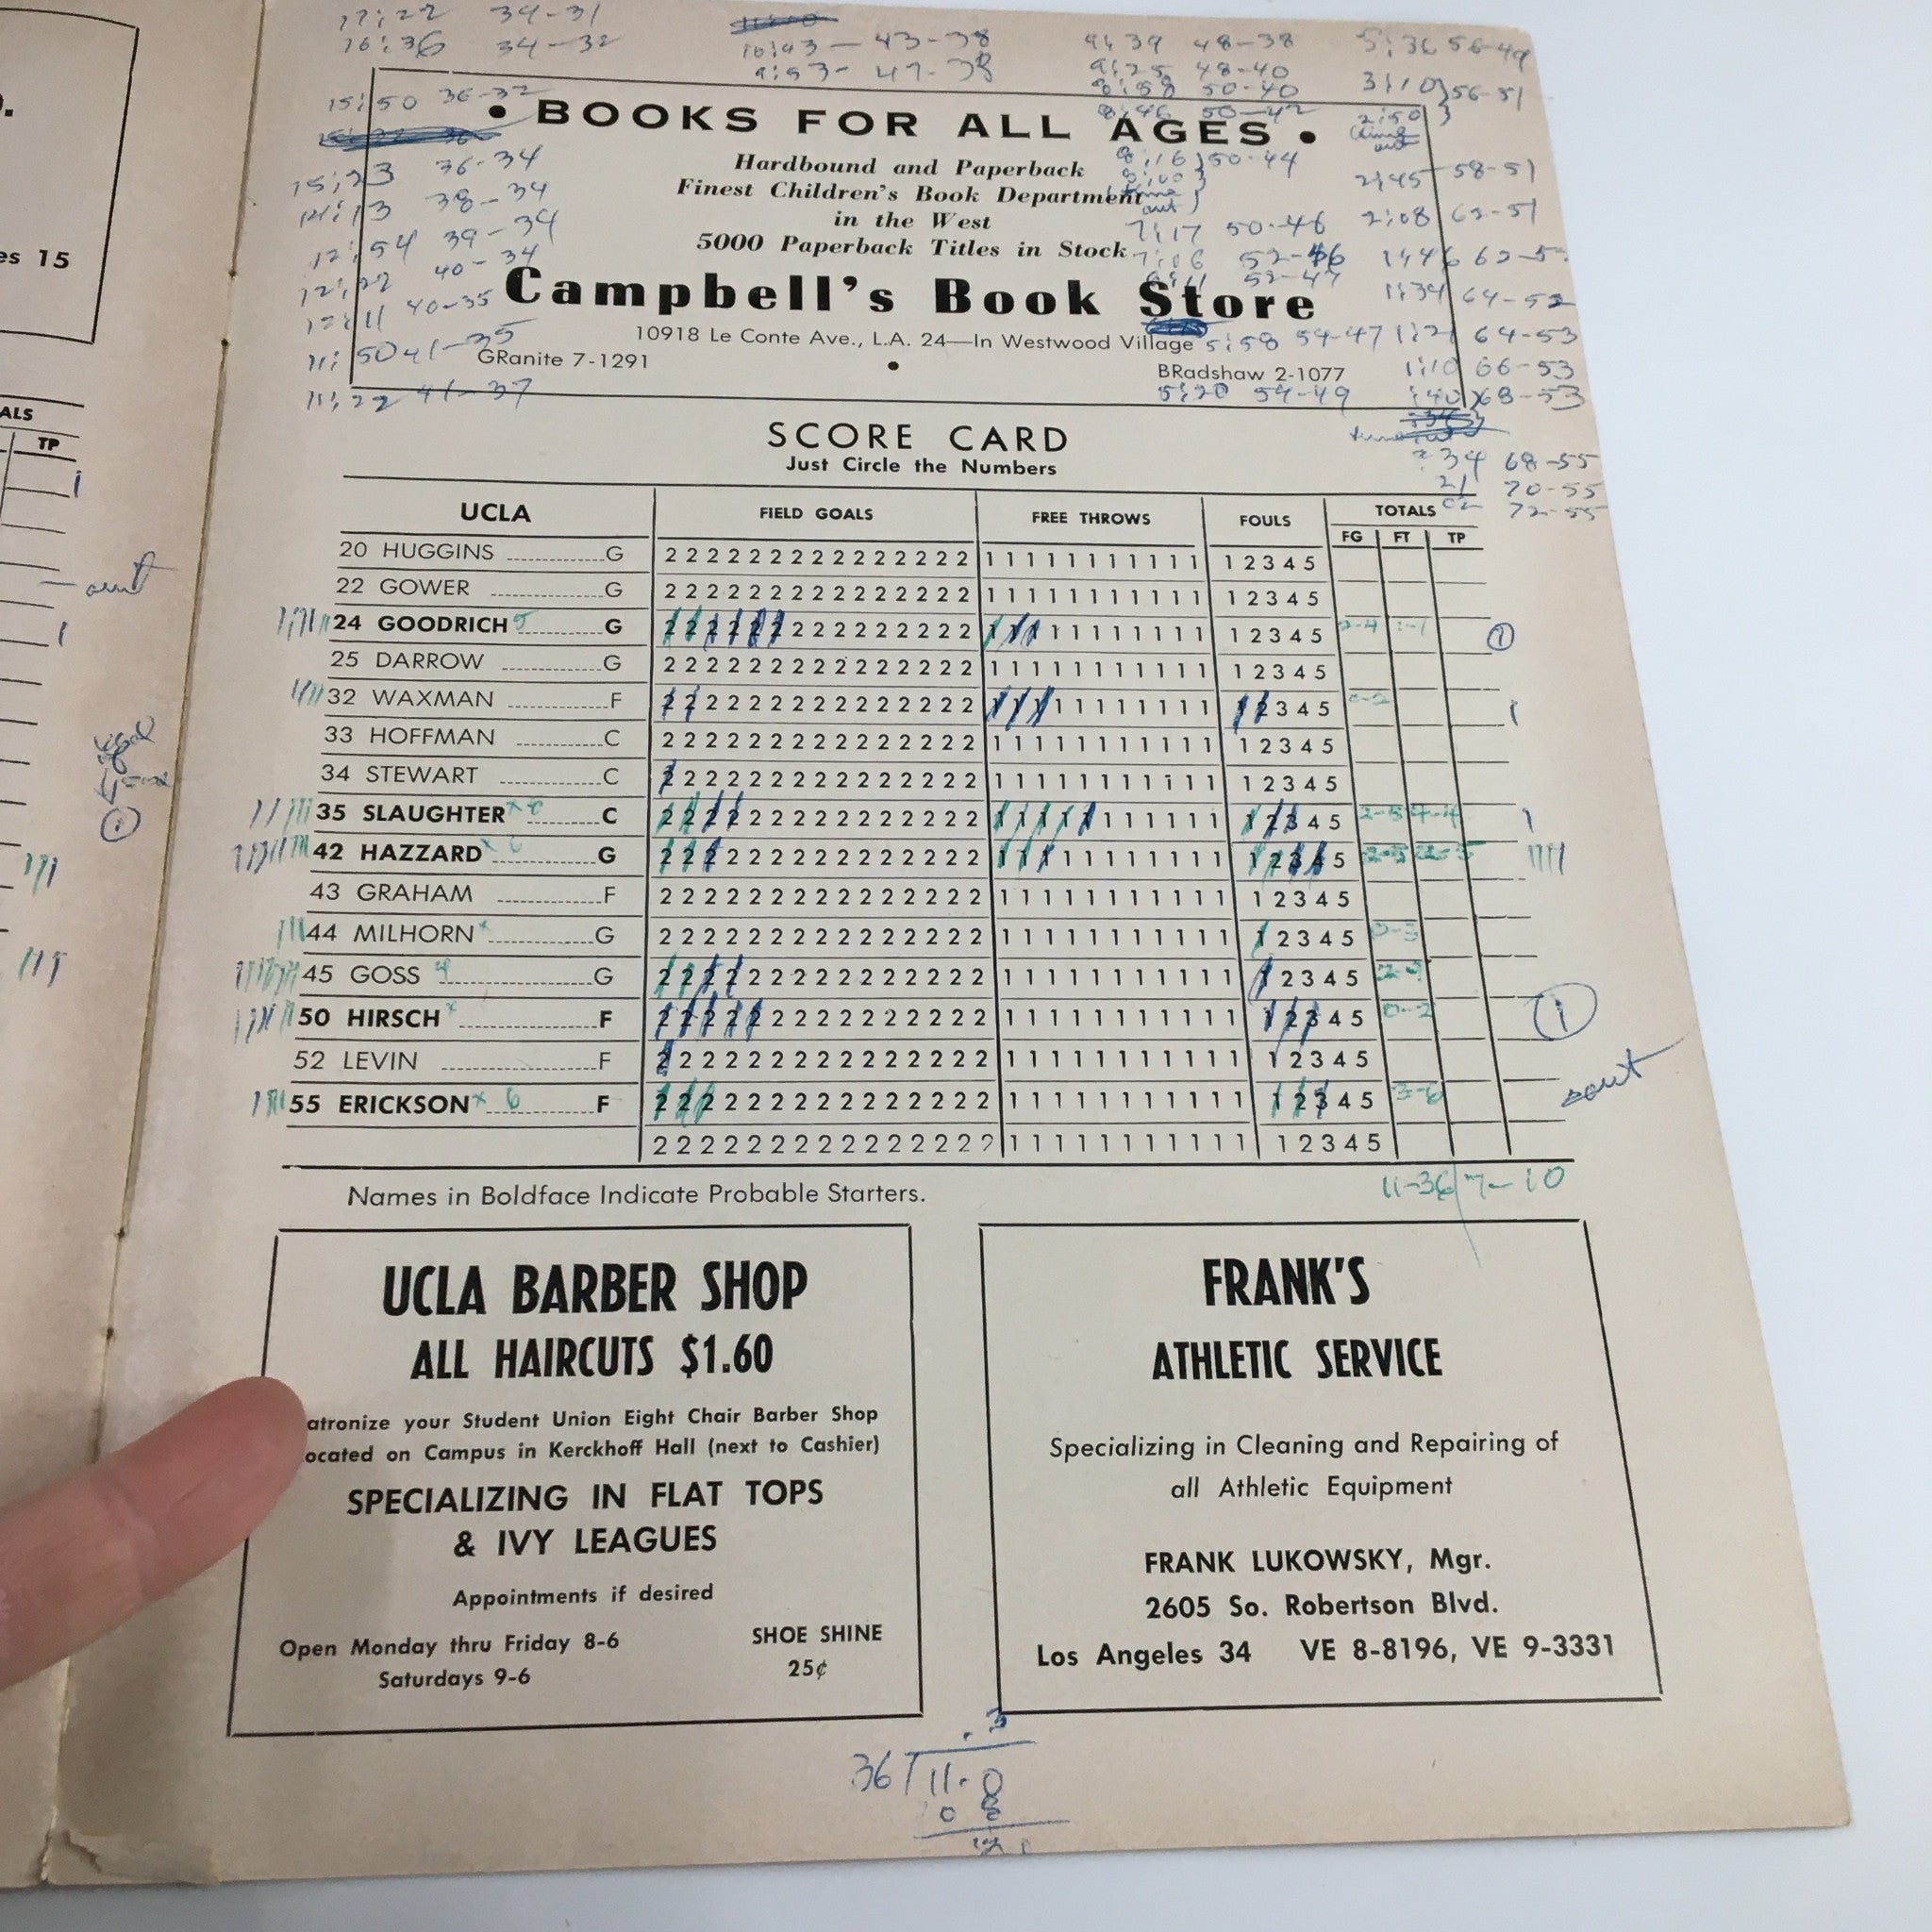 17:22 34-31
16:36 34-32
10:43 — 43-38
9:53- 47-38
9:39 48-38
9:25 48-40
8:58 50-40
8:46 50-42
5:36 56-49
3:10 } 56-51
2:50
15:50 36-32
• BOOKS FOR ALL AGES •
15:23 36-34
14:13 38-34
12:54 39-34
12:22 40-34
12:11 40-35
11:50 41-35
11:22 41-37
Hardbound and Paperback
Finest Children's Book Department
in the West
5000 Paperback Titles in Stock
Campbell's Book Store
10918 Le Conte Ave., L.A. 24—In Westwood Village
GRanite 7-1291 • BRadshaw 2-1077
8:16 } 50-44
8:00
time
out
7:17 50-46
7:06 52-46
52-47
5:58 54-47
5:20 54-49
2:45 58-51
2:08 62-51
1:46 62-5
1:34 64-52
1:21 64-53
1:10 66-53
:40 68-53
:34 68-55
21 70-55
02 72-55
es 15
ALS
TP
out
SCORE CARD
Just Circle the Numbers
UCLA FIELD GOALS FREE THROWS FOULS TOTALS
FG FT TP
20 HUGGINS G 2 2 2 2 2 2 2 2 2 2 2 2 2 2 2 1 1 1 1 1 1 1 1 1 1 1 1 2 3 4 5
22 GOWER G 2 2 2 2 2 2 2 2 2 2 2 2 2 2 2 1 1 1 1 1 1 1 1 1 1 1 1 2 3 4 5
24 GOODRICH 5 G 2 2 2 2 2 2 2 2 2 2 2 2 2 2 2 1 1 1 1 1 1 1 1 1 1 1 1 2 3 4 5 2-4 1-1 1
25 DARROW G 2 2 2 2 2 2 2 2 2 2 2 2 2 2 2 1 1 1 1 1 1 1 1 1 1 1 1 2 3 4 5
32 WAXMAN F 2 2 2 2 2 2 2 2 2 2 2 2 2 2 2 1 1 1 1 1 1 1 1 1 1 1 1 2 3 4 5 0-2
33 HOFFMAN C 2 2 2 2 2 2 2 2 2 2 2 2 2 2 2 1 1 1 1 1 1 1 1 1 1 1 1 2 3 4 5
34 STEWART C 2 2 2 2 2 2 2 2 2 2 2 2 2 2 2 1 1 1 1 1 1 1 1 1 1 1 1 2 3 4 5
35 SLAUGHTER x 8 C 2 2 2 2 2 2 2 2 2 2 2 2 2 2 2 1 1 1 1 1 1 1 1 1 1 1 1 2 3 4 5 2-5 4-4
42 HAZZARD x 6 G 2 2 2 2 2 2 2 2 2 2 2 2 2 2 2 1 1 1 1 1 1 1 1 1 1 1 1 2 3 4 5
43 GRAHAM F 2 2 2 2 2 2 2 2 2 2 2 2 2 2 2 1 1 1 1 1 1 1 1 1 1 1 1 2 3 4 5
44 MILHORN x G 2 2 2 2 2 2 2 2 2 2 2 2 2 2 2 1 1 1 1 1 1 1 1 1 1 1 1 2 3 4 5 0-3
45 GOSS 4 G 2 2 2 2 2 2 2 2 2 2 2 2 2 2 2 1 1 1 1 1 1 1 1 1 1 1 1 2 3 4 5
50 HIRSCH x F 2 2 2 2 2 2 2 2 2 2 2 2 2 2 2 1 1 1 1 1 1 1 1 1 1 1 1 2 3 4 5 0-2 1
52 LEVIN F 2 2 2 2 2 2 2 2 2 2 2 2 2 2 2 1 1 1 1 1 1 1 1 1 1 1 1 2 3 4 5
55 ERICKSON x 6 F 2 2 2 2 2 2 2 2 2 2 2 2 2 2 2 1 1 1 1 1 1 1 1 1 1 1 1 2 3 4 5 3-6 out
2 2 2 2 2 2 2 2 2 2 2 2 2 2 2 1 1 1 1 1 1 1 1 1 1 1 1 2 3 4 5
11-36 7-10
Names in Boldface Indicate Probable Starters.
UCLA BARBER SHOP
ALL HAIRCUTS $1.60
atronize your Student Union Eight Chair Barber Shop
ocated on Campus in Kerckhoff Hall (next to Cashier)
SPECIALIZING IN FLAT TOPS
& IVY LEAGUES
Appointments if desired
Open Monday thru Friday 8-6
Saturdays 9-6
SHOE SHINE
25¢
FRANK'S
ATHLETIC SERVICE
Specializing in Cleaning and Repairing of
all Athletic Equipment
FRANK LUKOWSKY, Mgr.
2605 So. Robertson Blvd.
Los Angeles 34 VE 8-8196, VE 9-3331
.3
36 11.0
0 8